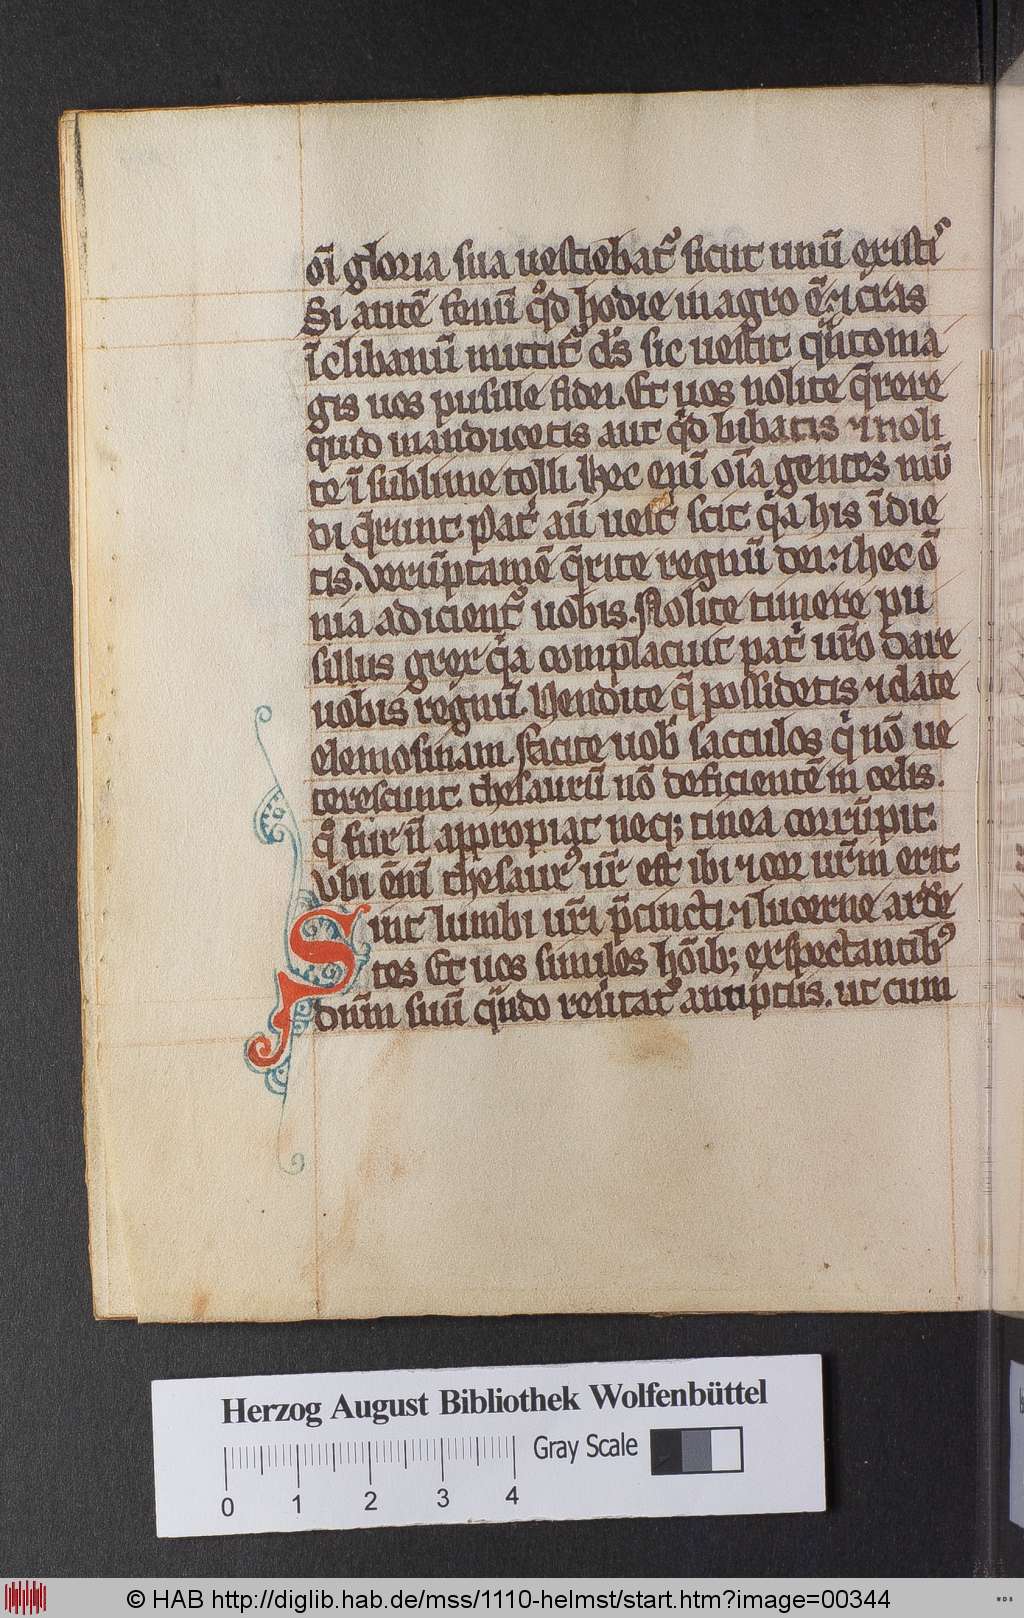 oı̄ gloria sua uestiebat᷒ sicut unū existis
Si autē fenū qd̓ hodie in agro ē ⁊ cras
ī clibanū mittit᷒ ds̄ sic uestit qn̄to ma
gis uos pusille fidei. Et uos nolite q̄rere
quid manducetis aut qͥd bibatis ⁊ noli
te ī sublime tolli hec enī oīa gentes mū
di q̄runt. Pat̓ aū uest̓ scit qͥa his īdige
tis. Verūptamē q̄rite regnū dei. ⁊ hec ō
nia adicient᷒ uobis. Nolite timere pu
sillus grex qͥa complacuit patͥ ur̄o dare
uobis regnū. Vendite q̄ possidetis ⁊ date
elemosinam. facite uobͥ sacculos qͥ nō ue
terescunt. thesaurū nō deficientē in celis.
qͦ fur n̄ appropiat neq; tinea corrūpit.
Vbi enī thesaur᷒ ur̄ est ibi ⁊ cor ur̄m erit
Sint lumbi ur̄i p̄cincti ⁊ lucerne arde
tes Et uos similes hōib; exspectantib᷒
dn̄m suū qn̄do reūtat᷒ a nuptiis. ut cum
Herzog August Bibliothek Wolfenbüttel
Gray Scale
0 1 2 3 4
© HAB http://diglib.hab.de/mss/1110-helmst/start.htm?image=00344